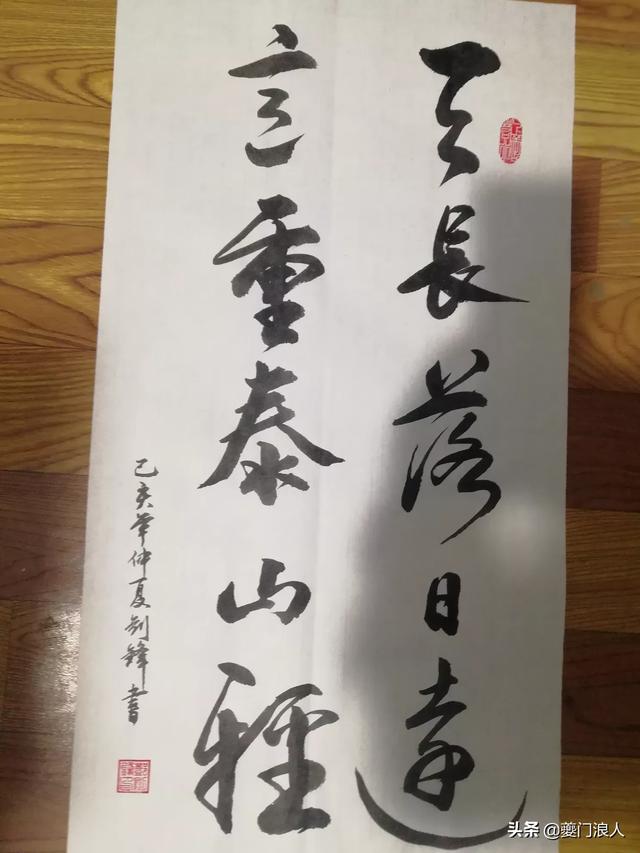 天長落日遠
言重泰山輕
己亥年仲夏剑鋒書
头条 @夔门浪人